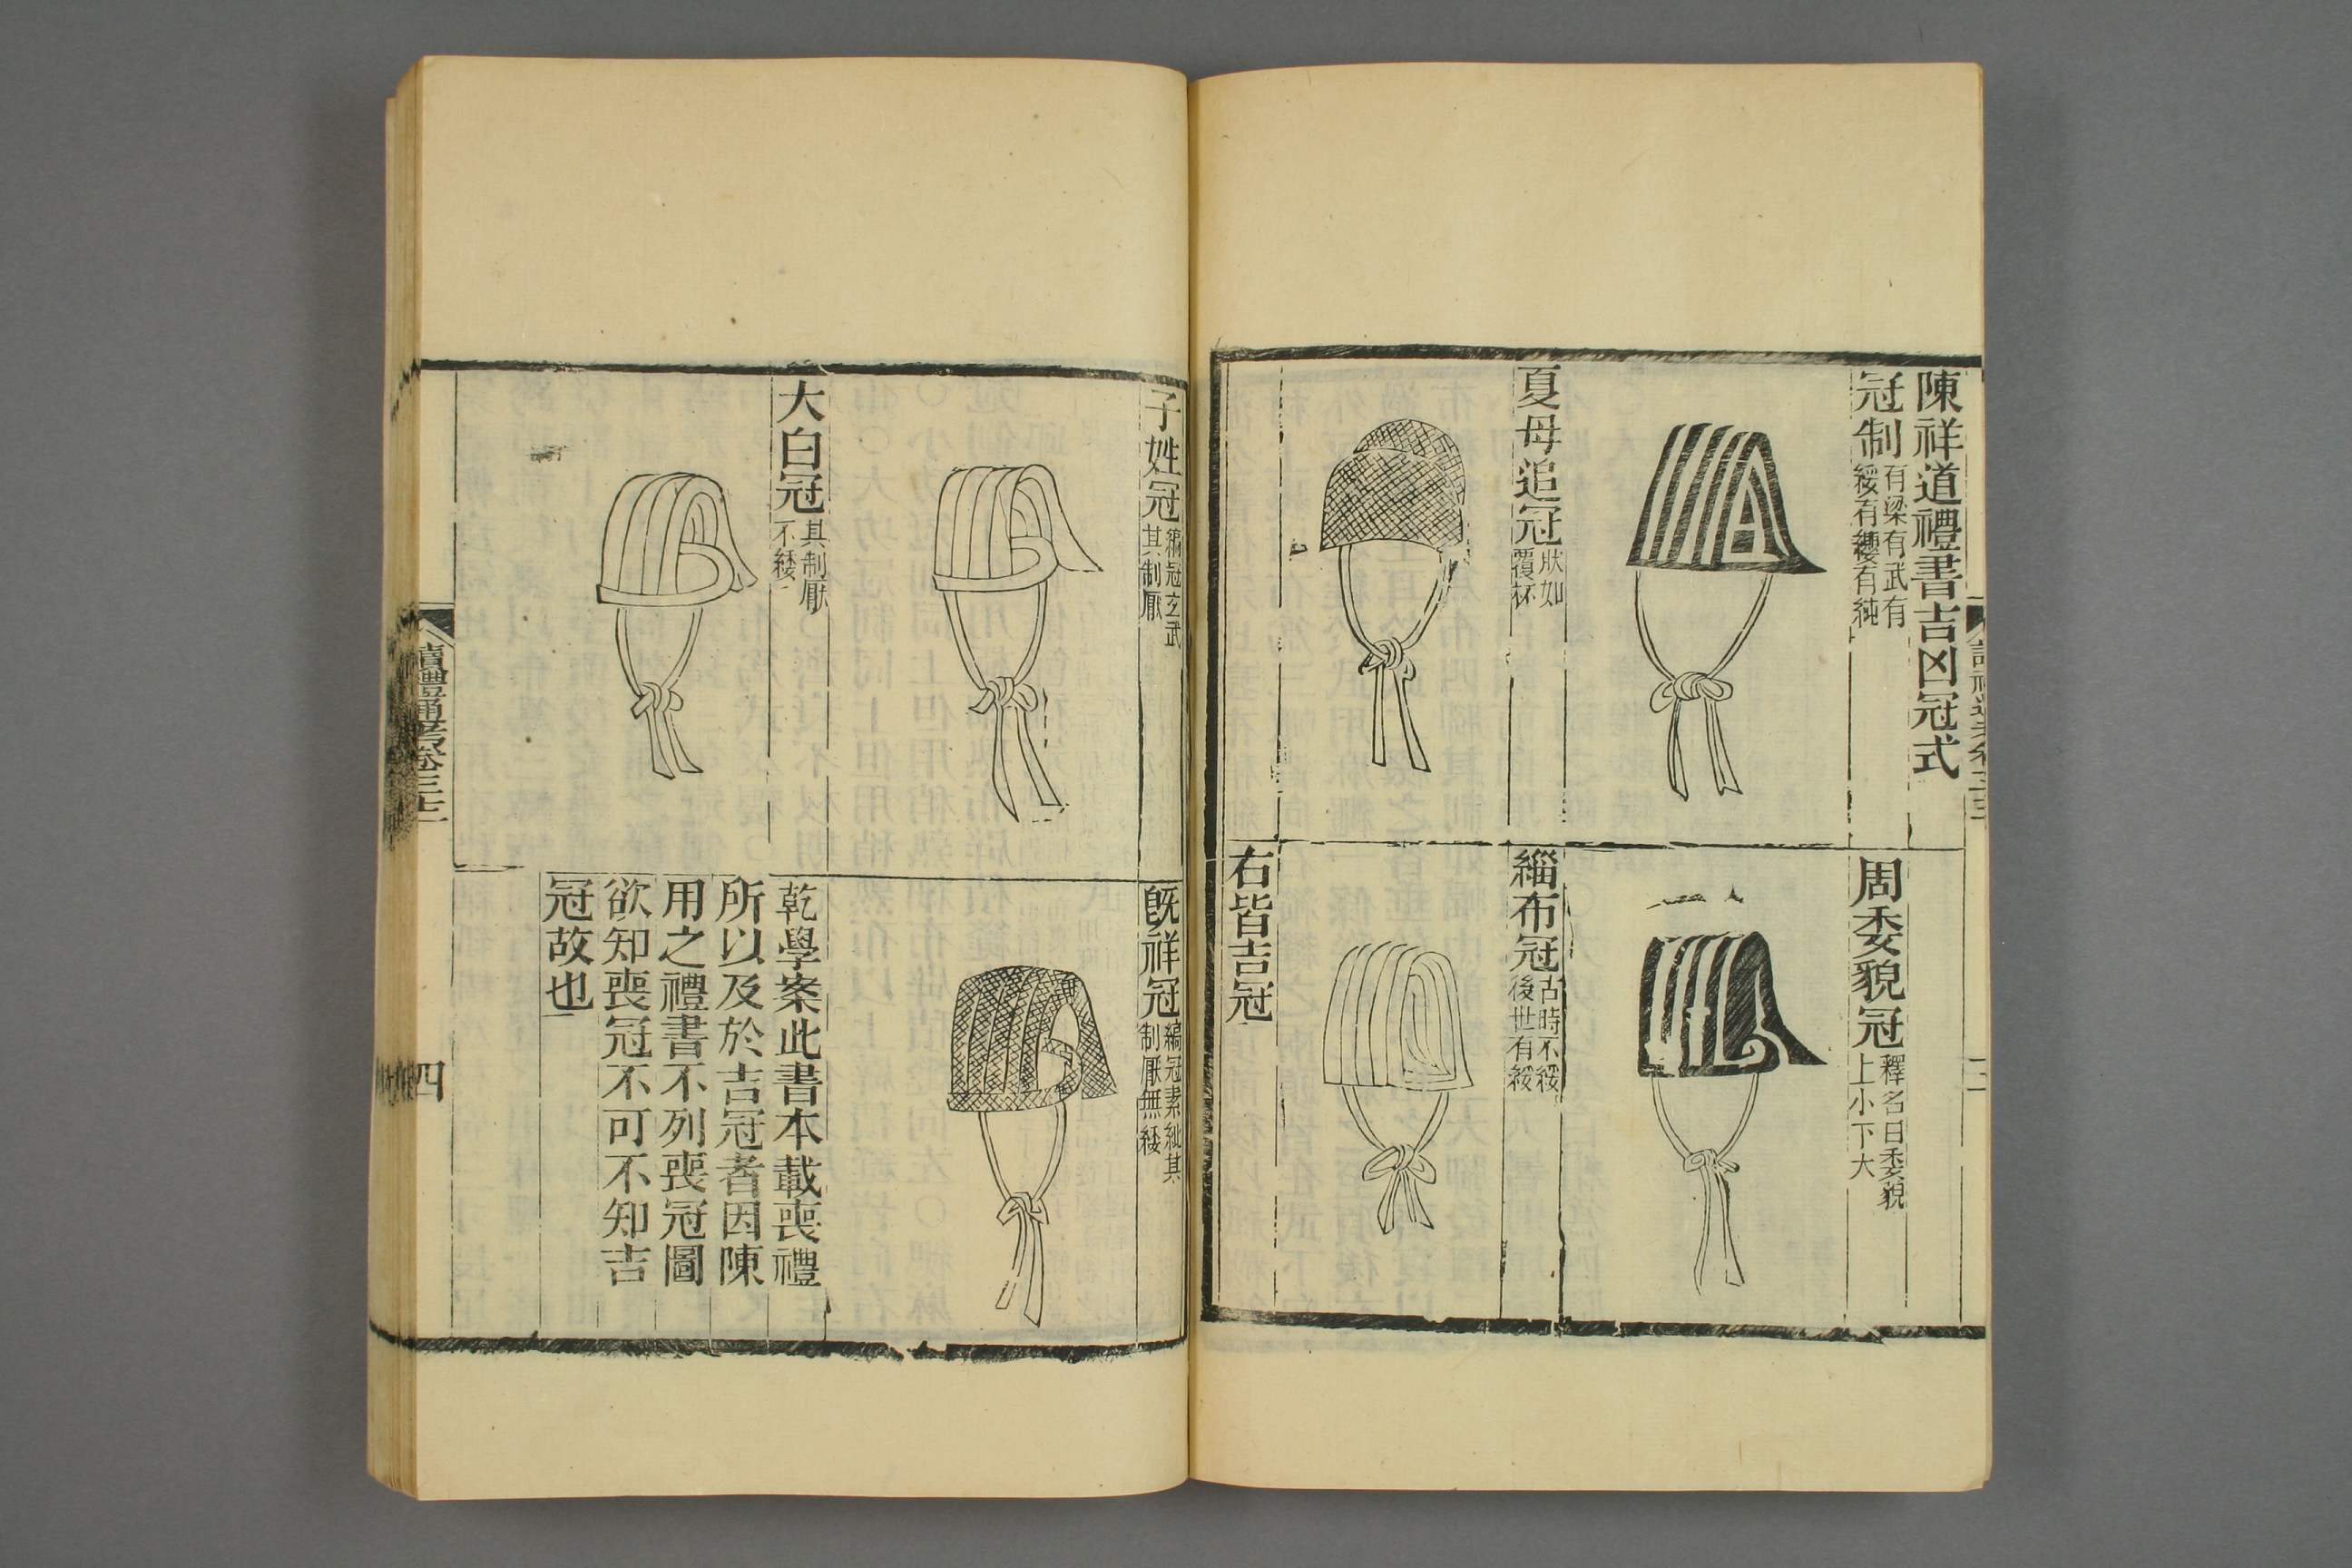 陳祥道禮書吉凶冠式
冠制
有梁有武有
緌有纓有純
周委貌冠
釋名曰委貌
上小下大
夏母追冠
狀如
覆杯
緇布冠
古時不緌
後世有緌
右皆吉冠
子姓冠
縞冠玄武
其制厭
旣祥冠
縞冠素紕其
制厭無緌
大白冠
其制厭
不緌
乾學案此書本載喪禮
所以及於吉冠者因陳
用之禮書不列喪冠圖
欲知喪冠不可不知吉
冠故也
讀禮通考卷三十二
四